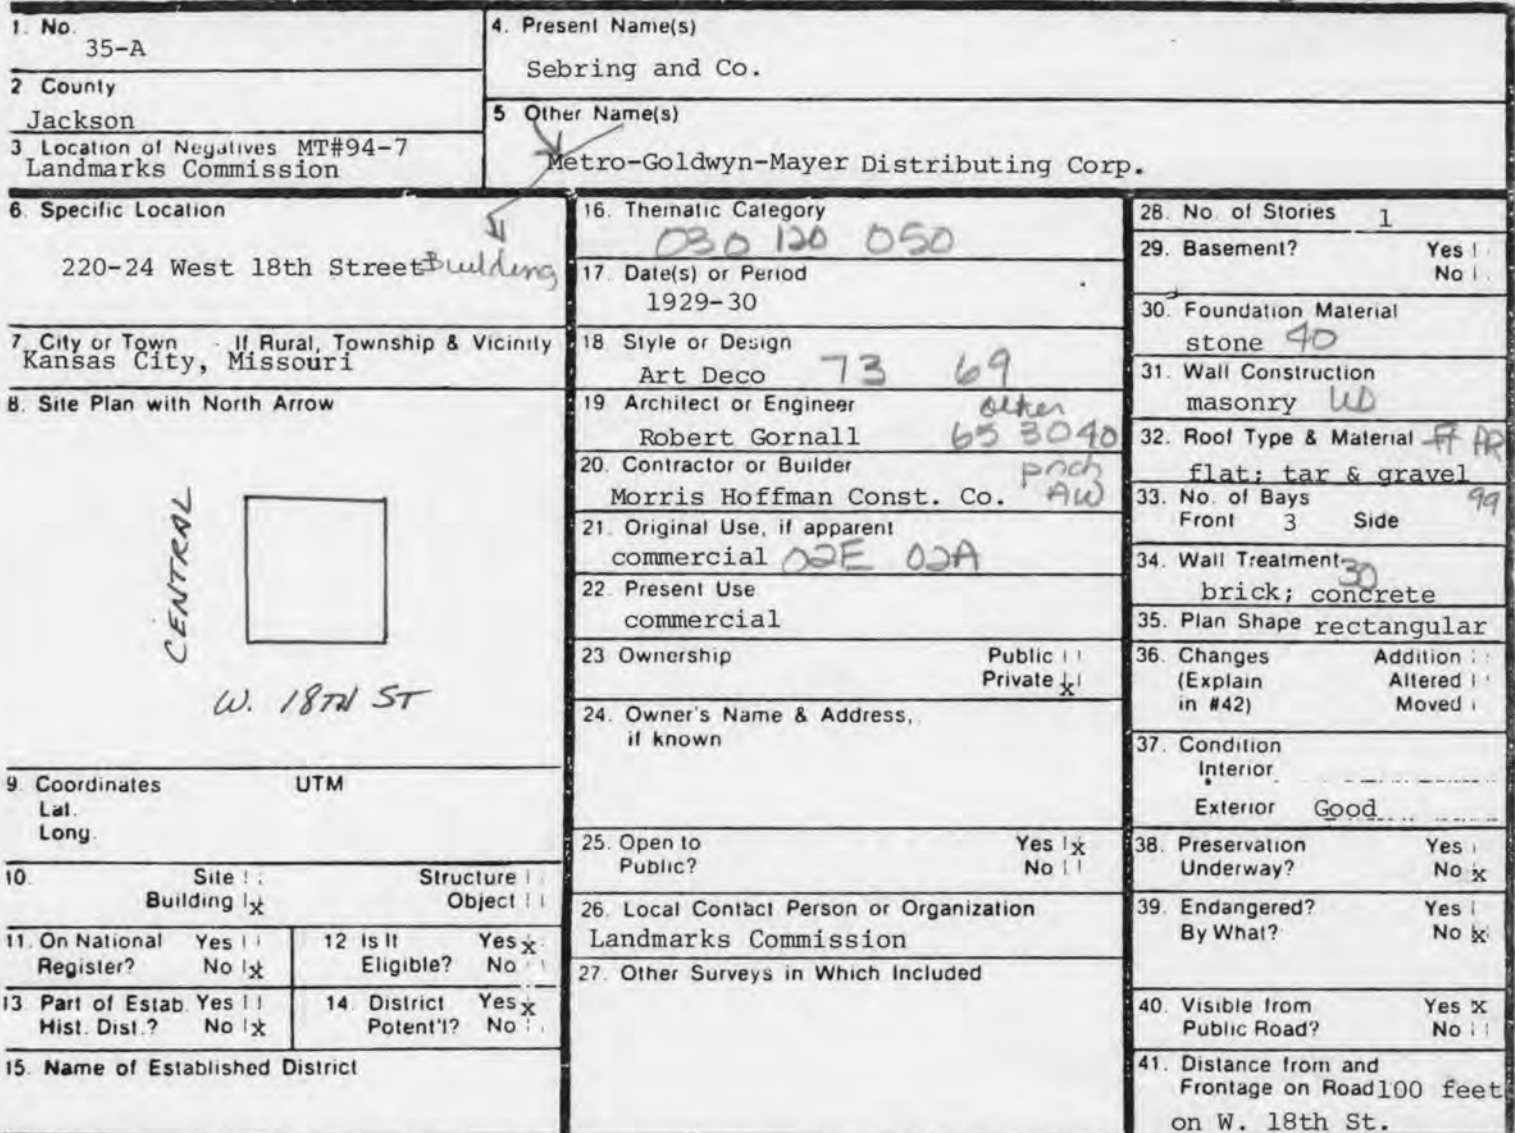 1. No.
35-A
2 County
Jackson
3 Location of Negatives MT#94-7
Landmarks Commission
4. Present Name(s)
Sebring and Co.
5 Other Name(s)
Metro-Goldwyn-Mayer Distributing Corp.
6. Specific Location
220-24 West 18th Street Building
7 City or Town If Rural, Township & Vicinity
Kansas City, Missouri
8. Site Plan with North Arrow
CENTRAL
W. 18TH ST
9. Coordinates UTM
Lat.
Long.
10. Site Structure
Building x Object
11. On National Yes
Register? No x
12 Is It Yes x
Eligible? No
13 Part of Estab. Yes
Hist. Dist.? No x
14. District Yes x
Potent'l? No
15. Name of Established District
16. Thematic Category
030 120 050
17. Date(s) or Period
1929-30
18 Style or Design
Art Deco 73 69
19 Architect or Engineer other
Robert Gornall 65 3040
20. Contractor or Builder porch
Morris Hoffman Const. Co. AW
21. Original Use, if apparent
commercial 02E 02A
22. Present Use
commercial
23 Ownership Public
Private x
24. Owner's Name & Address,
if known
25. Open to Yes x
Public? No
26. Local Contact Person or Organization
Landmarks Commission
27. Other Surveys in Which Included
28. No. of Stories 1
29. Basement? Yes
No
30. Foundation Material
stone 40
31. Wall Construction
masonry UD
32. Roof Type & Material FT AR
flat; tar & gravel
33. No. of Bays 99
Front 3 Side
34. Wall Treatment 30
brick; concrete
35. Plan Shape rectangular
36. Changes Addition
(Explain Altered
in #42) Moved
37. Condition
Interior
Exterior Good
38. Preservation Yes
Underway? No x
39. Endangered? Yes
By What? No x
40. Visible from Yes x
Public Road? No
41. Distance from and
Frontage on Road 100 feet
on W. 18th St.